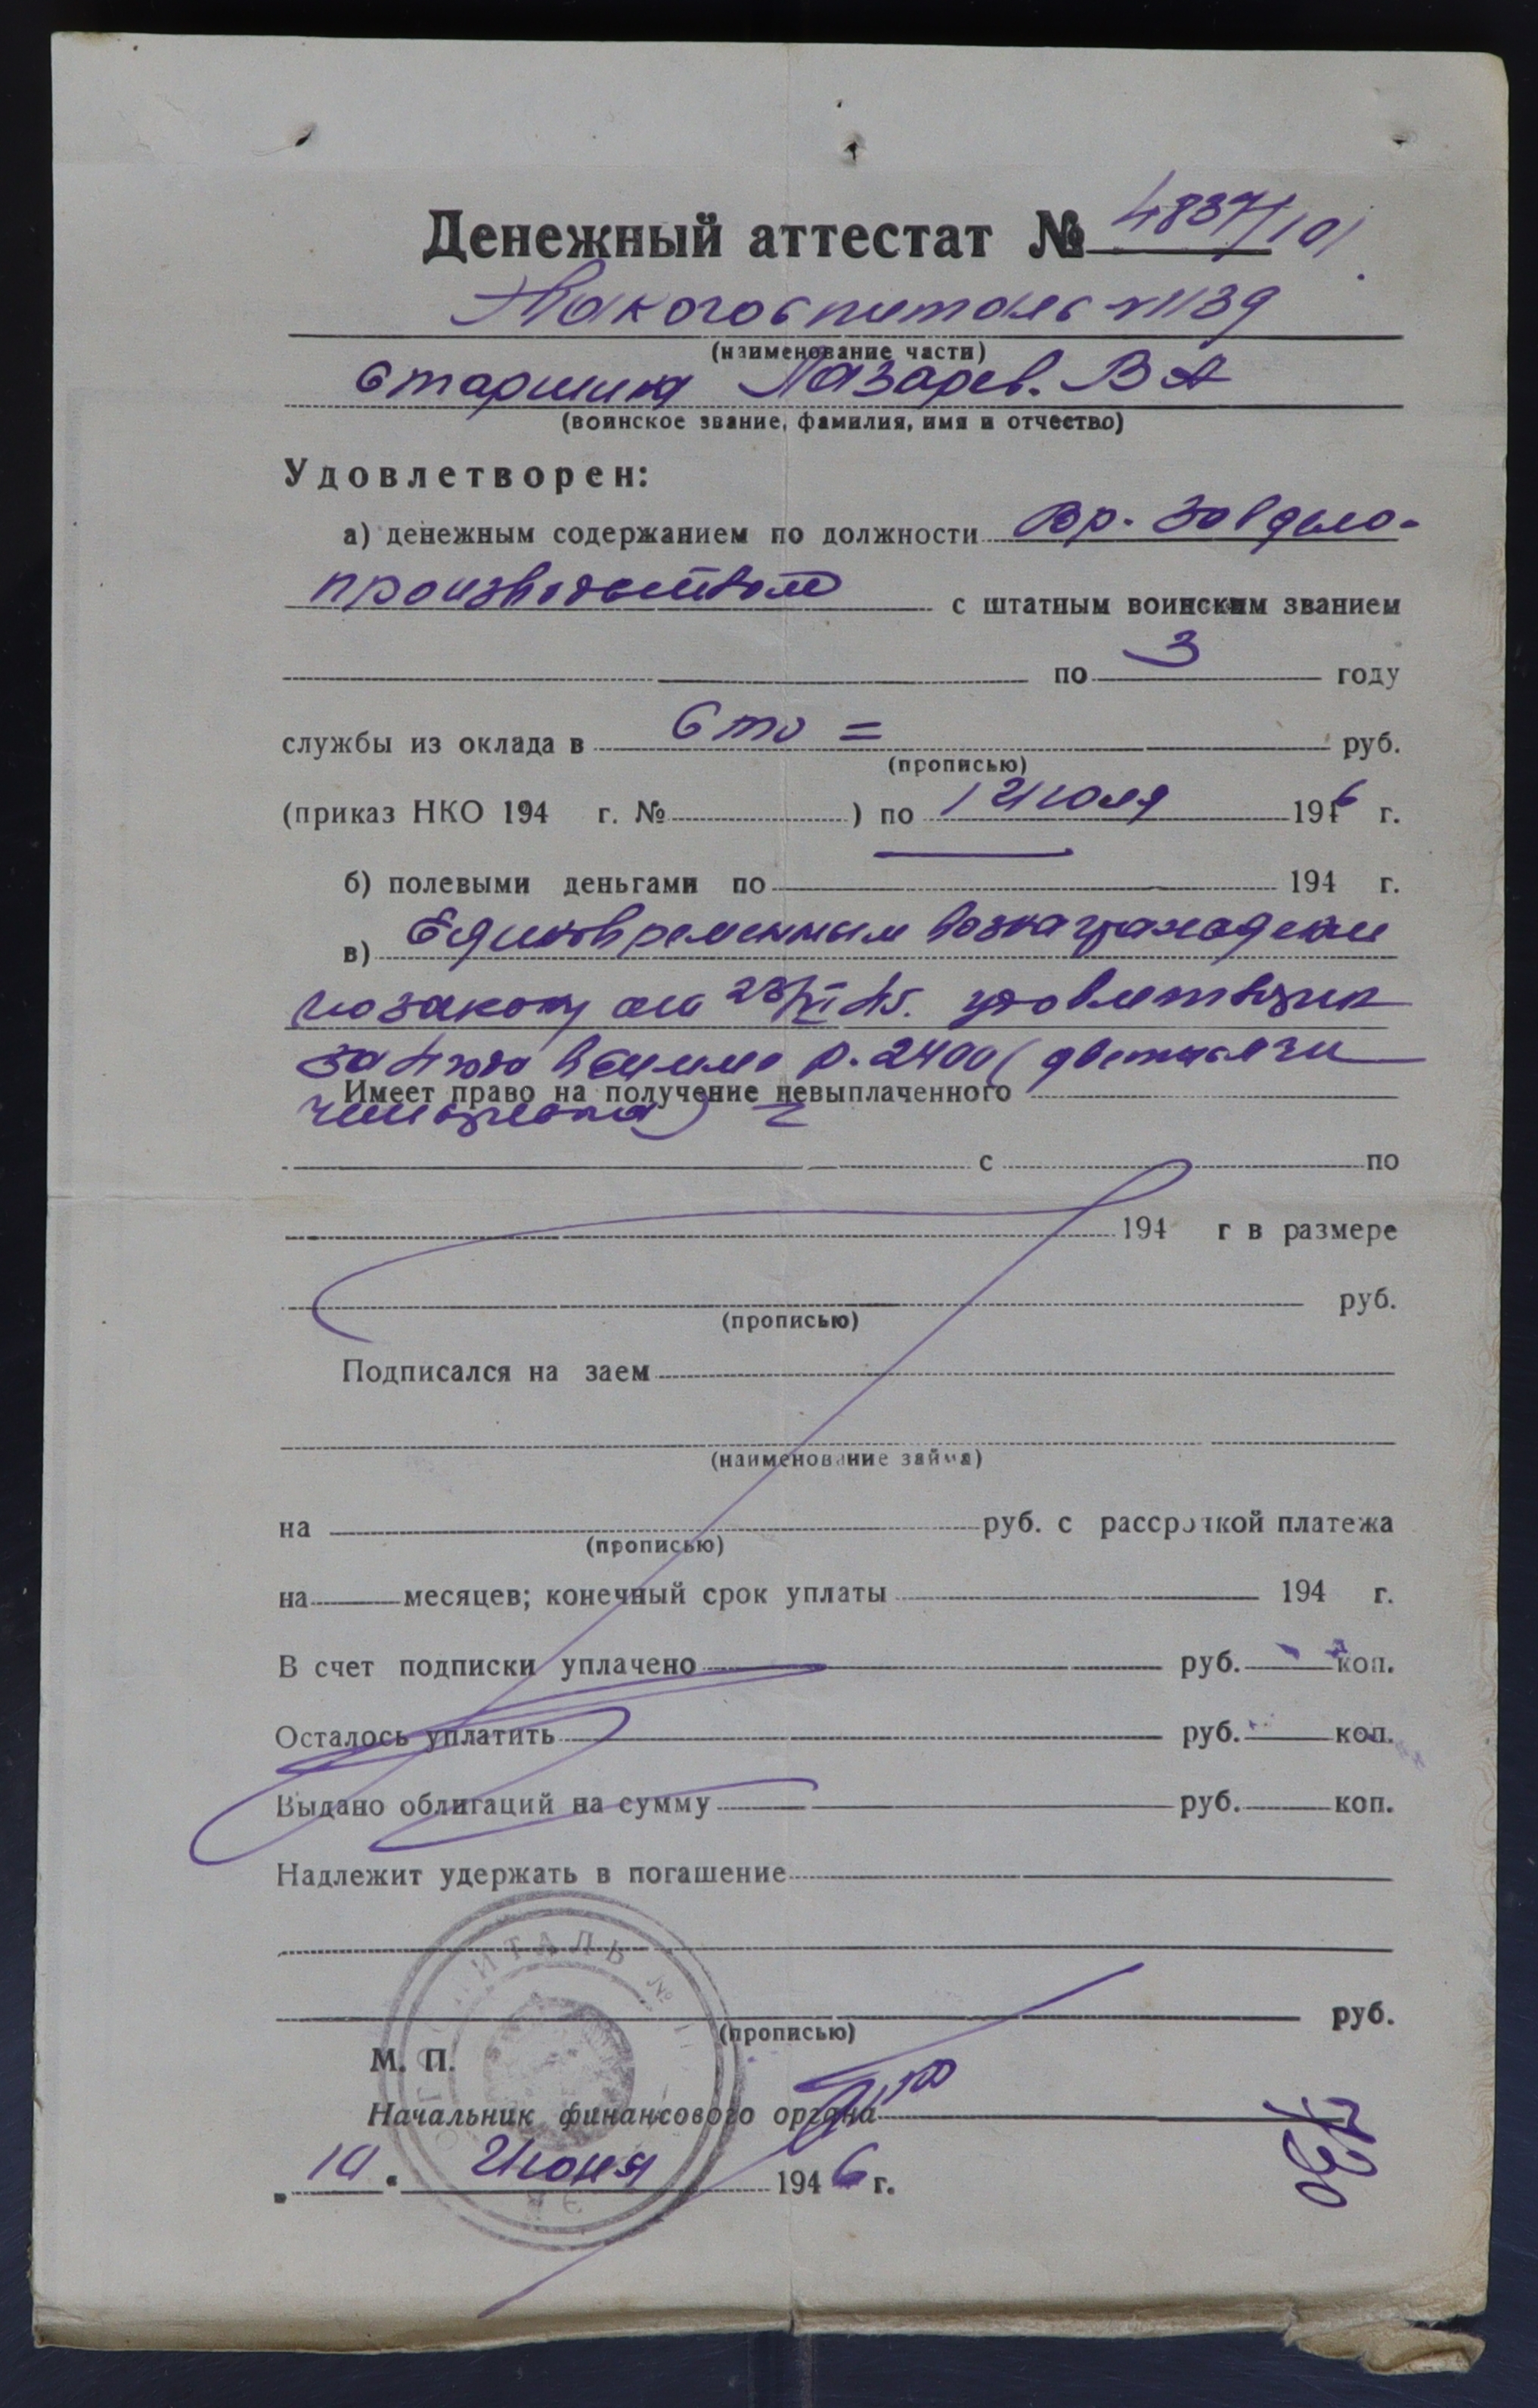 Денежный аттестат № 4837/101
госпиталь №1139
(наименование части)
старшина Лазарев. В А
(воинское звание, фамилия, имя и отчество)
Удовлетворен:
а) денежным содержанием по должности Вр. Завдело-
производством с штатным воинским званием
по 3 году
службы из оклада в Сто = руб.
(прописью)
(приказ НКО 194 г. № ) по 1 Июля 1946 г.
б) полевыми деньгами по 194 г.
в) Единовременным вознаграждением
по закону от 23/VI 45. удовлетворен
за 4 года в сумме р. 2400 (две тысячи
Имеет право на получение невыплаченного
четыреста)
с по
194 г в размере
руб.
(прописью)
Подписался на заем
(наименование займа)
на руб. с рассрочкой платежа
(прописью)
на месяцев; конечный срок уплаты 194 г.
В счет подписки уплачено руб. коп.
Осталось уплатить руб. коп.
Выдано облигаций на сумму руб. коп.
Надлежит удержать в погашение
ГОСПИТАЛЬ №
руб.
(прописью)
М. П.
Начальник финансового органа
"10" Июня 1946 г.